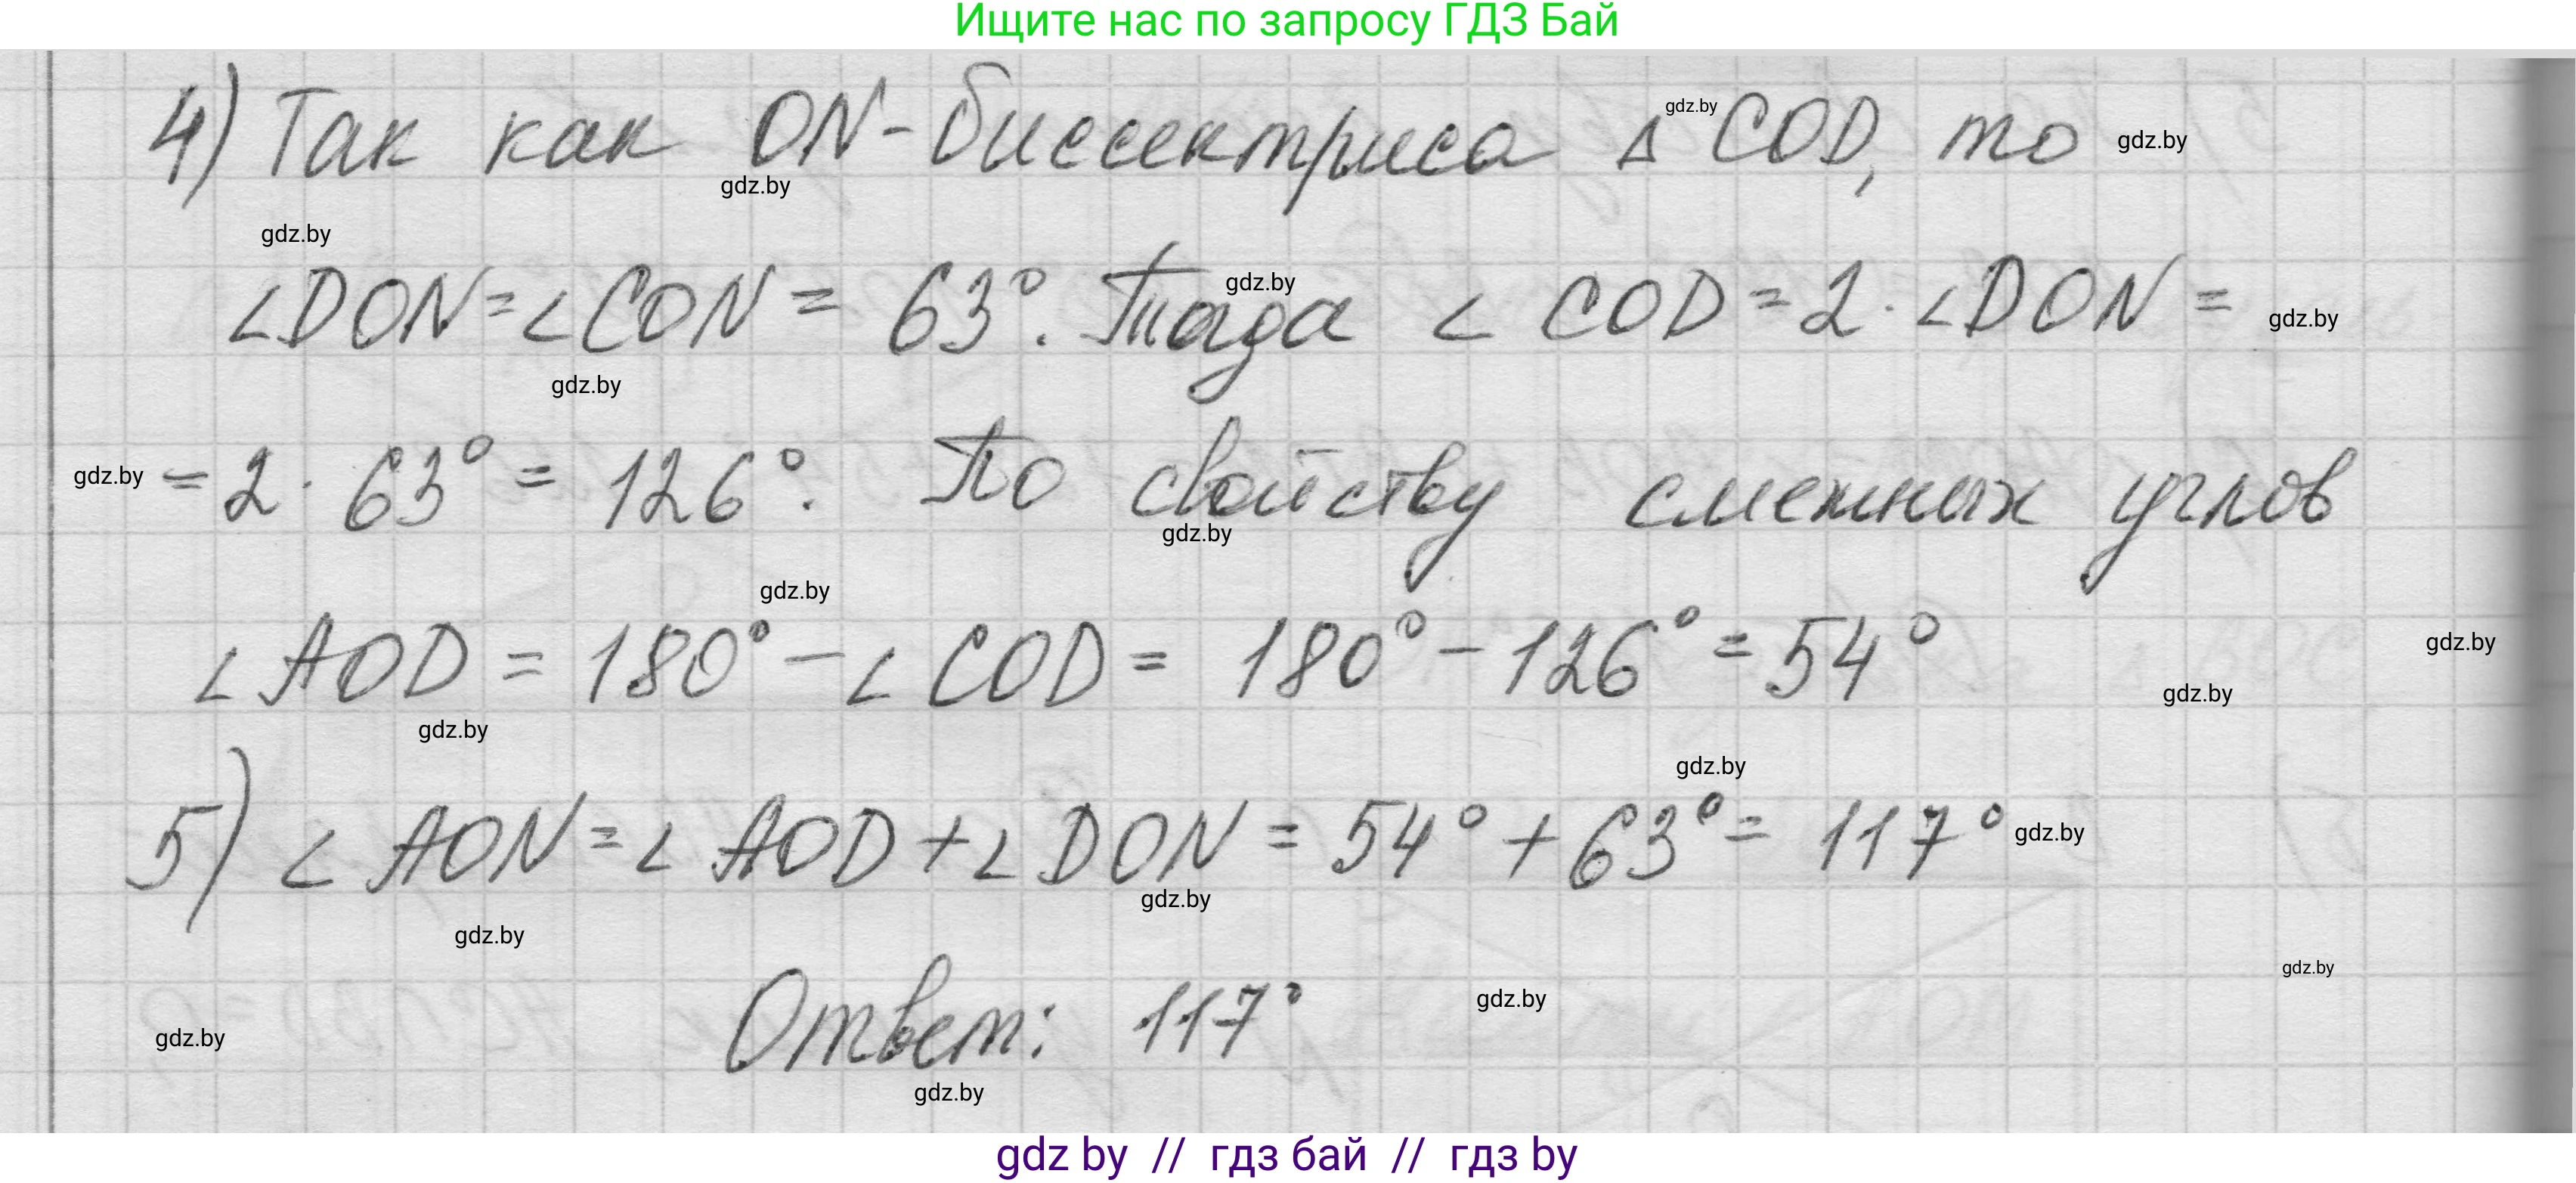 Ищите нас по запросу ГДЗ Бай
4) Так как ON-биссектриса Δ COD, то
gdz.by
gdz.by
gdz.by
gdz.by
∠DON=∠CON = 63°. Тогда ∠ COD=2·∠DON =
gdz.by
gdz.by
gdz.by
= 2 · 63° = 126°. По свойству смежных углов
gdz.by
gdz.by
gdz.by
∠ AOD = 180° - ∠ COD = 180° - 126° = 54°
gdz.by
gdz.by
gdz.by
gdz.by
5) ∠ AON = ∠ AOD + ∠ DON = 54° + 63° = 117°
gdz.by
gdz.by
gdz.by
gdz.by
Ответ: 117°
gdz.by
gdz.by
gdz.by
gdz by // гдз бай // гдз by